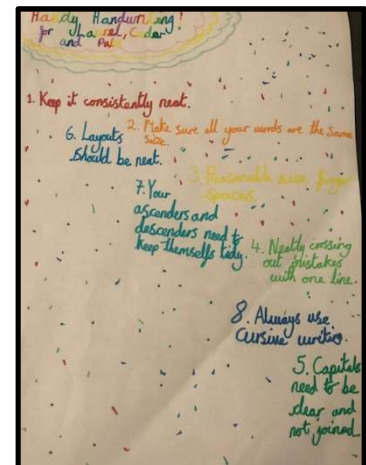 Handy Handwriting!
for Laurel, Cedar
and
1. Keep it consistently neat.
2. Make sure all your words are the same
size.
3. Reasonable size finger
spaces.
4. Neatly crossing
out mistakes
with one line.
5. Capitals
need to be
clear and
not joined.
6. Layouts
should be neat.
7. Your
ascenders and
descenders need to
keep themselves tidy.
8. Always use
cursive writing.